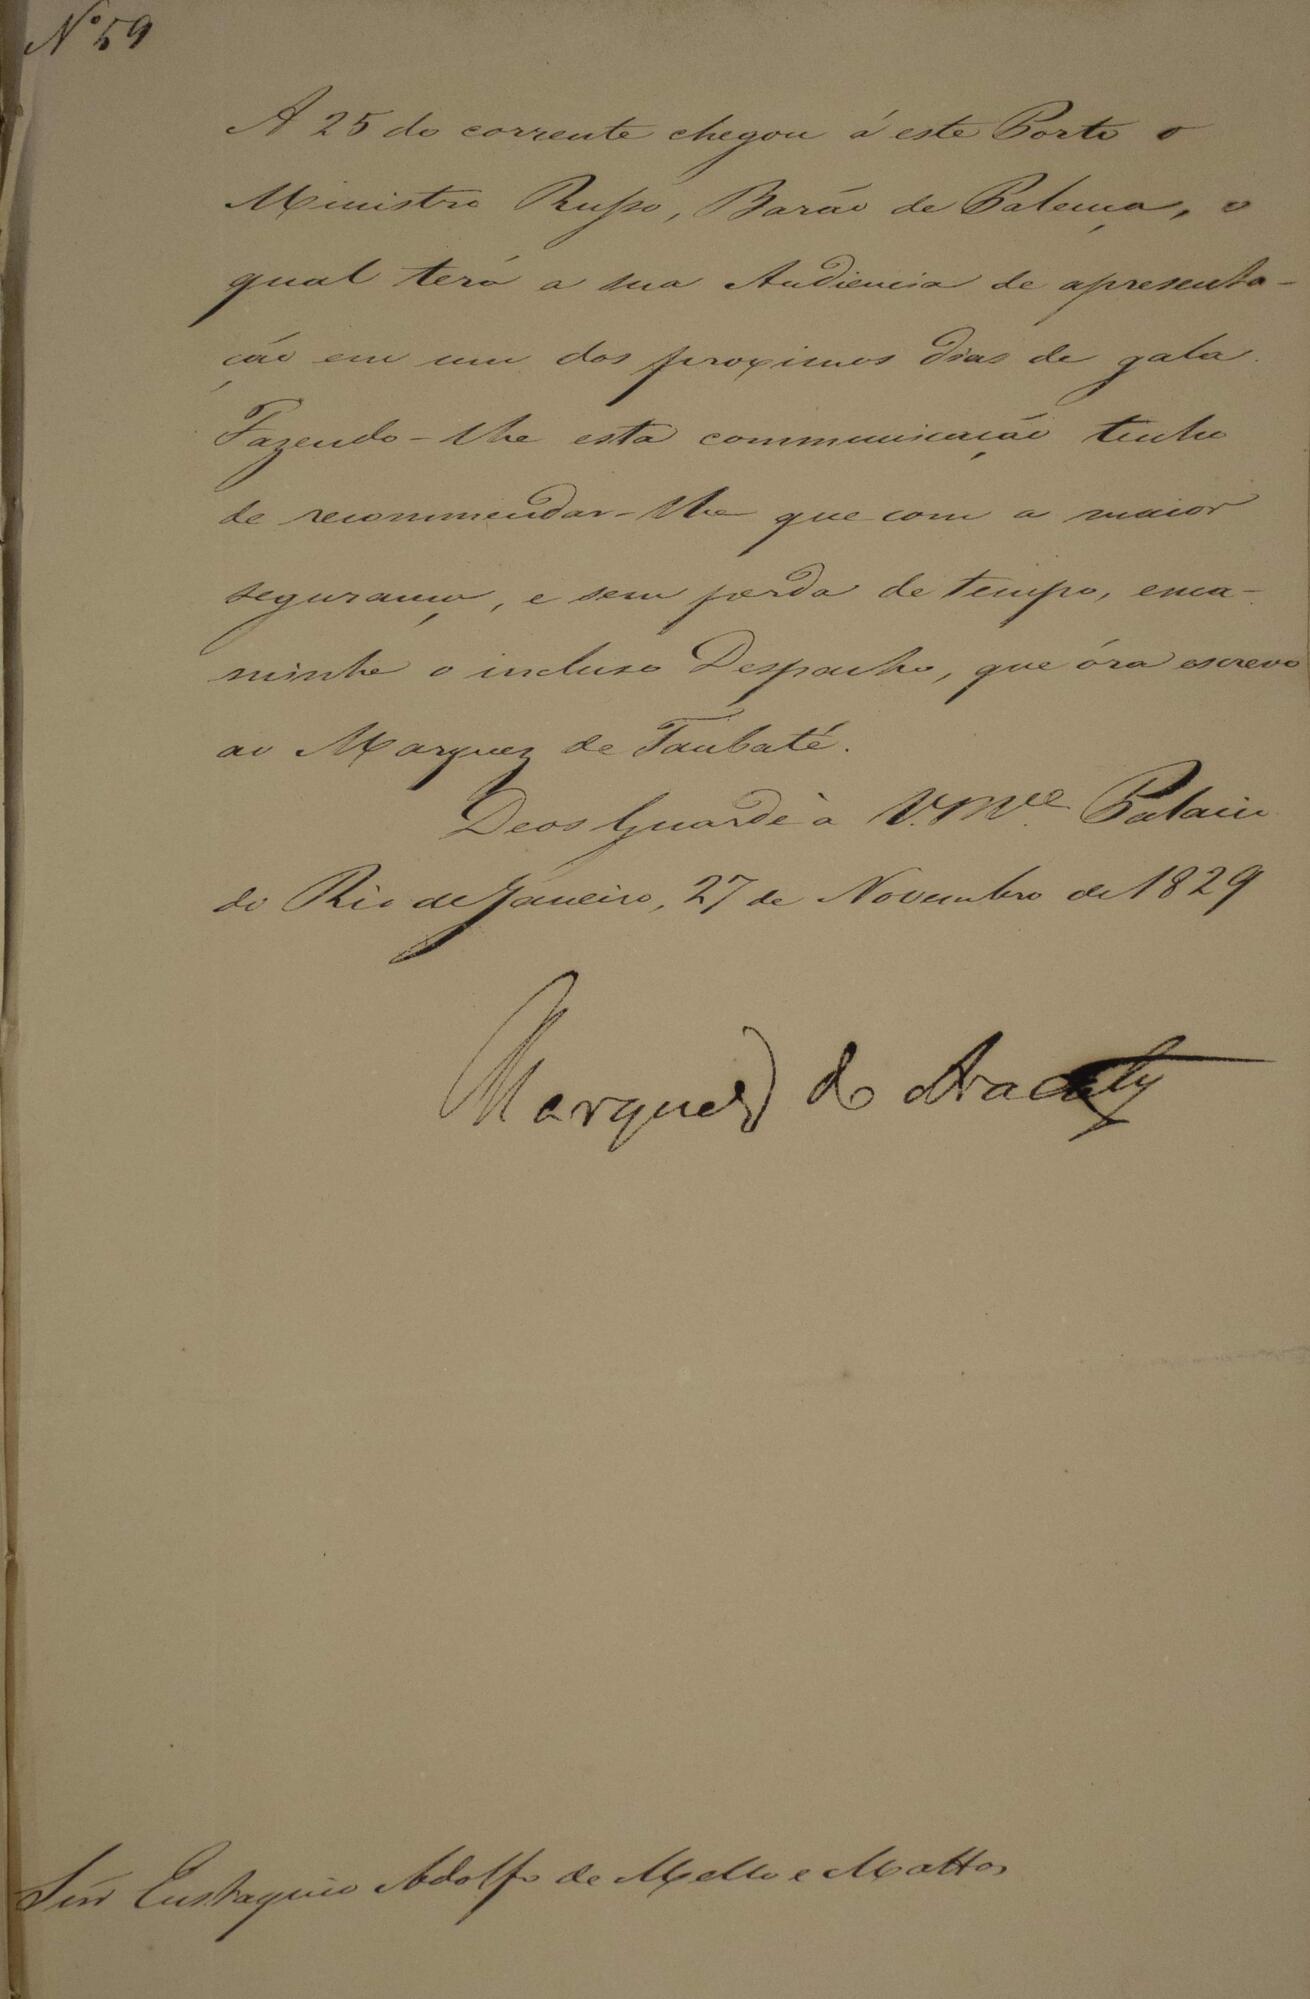 Nº 59
A 25 do corrente chegou á este Porto o
Ministro Russo, Barão de Palença, o
qual terá a sua Audiencia de apresenta-
ção em um dos proximos dias de gala.
Fazendo-lhe esta communicação tenho
de recommendar-lhe que com a maior
segurança, e sem perda de tempo, enca-
minhe o incluso Despacho, que óra escrevo
ao Marquez de Taubaté.
Deos Guarde à V. Mce Palacio
do Rio de Janeiro, 27 de Novembro de 1829
Marquez do Aracaty
Snr Eustaquio Adolfo de Mello e Mattos